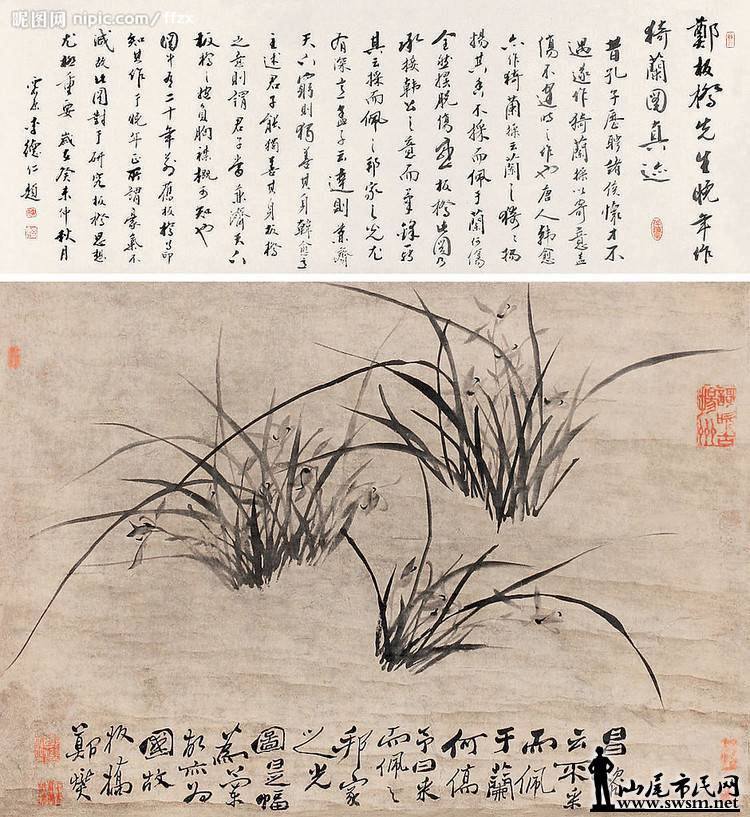 鄭板橋先生晚年作
猗蘭圖真迹
昔孔子歷聘諸侯懷才不
遇遂作猗蘭操以寄意蓋
傷不逢時之作也唐人韓愈
亦作猗蘭操云蘭之猗猗揚
揚其香不採而佩于蘭何傷
全然擺脫傷感板橋此圖乃
承接韓公之意而筆鋒
其云採而佩之邦家之光尤
有深意孟子云達則兼濟
天下窮則獨善其身韓愈
主述君子能獨善其身板橋
之意則謂君子當兼濟天下
板橋之抱負胸襟概可知也
圖中有二十年前舊板橋方印
知其作于晚年正所謂豪氣不
減故此圖對于研究板橋思想
尤極重要 歲在癸未仲秋月
李德仁題
昌黎
云不采
而佩
于蘭
何傷
予曰采
而佩之
邦家
之光
圖是幅
亦為
國故
板橋
鄭燮
昵图网 nipic.com/ffzx
汕尾市民网
www.swsm.net